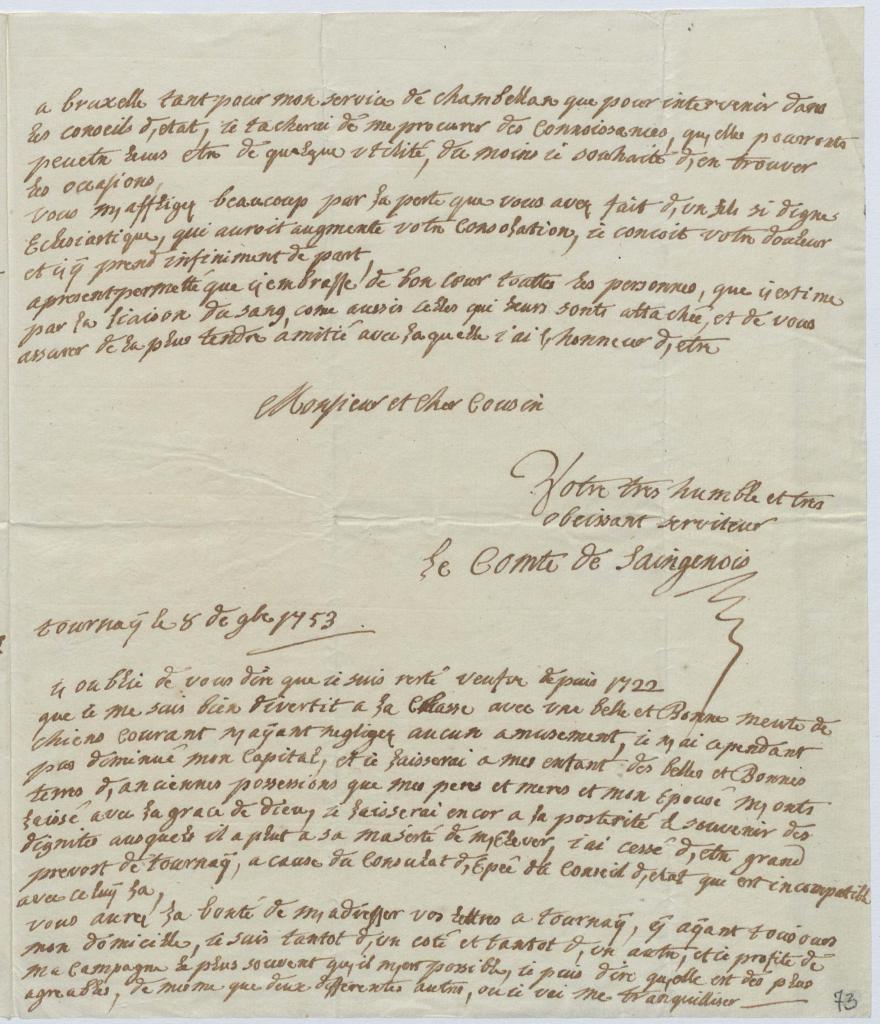 a bruxelle tant pour mon service de chambellan que pour intervenir dans
les conseils d,etat, ie tacherai de me procurer des connoissances, qu,elle pourronts
peuetre leurs etre de quelque utilité, du moins ie souhaite d,en trouver
les occasions,
vous m,affligez beaucoup par la perte que vous avez fait d,un fils si digne
Eclesiastique, qui auroit augmenté votre consolation, ie concoit votre douleur
et i,ÿ prend infiniment de part,
apresent permetté que i,embrasse de bon cœur touttes les personnes, que i,estime
par la liaison du sang, come aussis celles qui leurs sonts attachée, et de vous
assurer de la plus tendre amitié avec laquelle i'ai l,honneur d,etre
Monsieur et cher cousin
Votre tres humble et tres
obeissant serviteur
Le Comte de Saingenois
tournaÿ le 8 de 9bre 1753
i,oublie de vous dire que ie suis resté veufve depuis 1722
que ie me suis bien divertit a la chasse avec une belle et Bonne meute de
chiens courant n,aÿant negligez aucun amusement, ie n,ai ependant
pas diminué mon capital, et ie laisserai a mes enfant des belles et Bonnes
terres d,anciennes possessions que mes peres et meres et mon Epouse m,onts
laissé avec la grace de dieu, ie laisserai encor a la posterité le souvenir des
dignites ausquels il a plut a sa maiesté de m,elever, i'ai cessé d,etre grand
prevost de tournaÿ, a cause du Consulat d,Epeé du Conseil d,etat que est incompatible
avec celuÿ la,
vous aurez la bonté de m,adresser vos lettres a tournaÿ, ÿ aÿant touiours
mon domicille, ie suis tantot d,un coté et tantot d,un autre, et ie profite de
ma campagne le plus souvent qu,il m,est possible, ie puis dire qu,elle est des plus
agreables, de meme que deux differentes autres, ou ie vai me tranquilliser
73